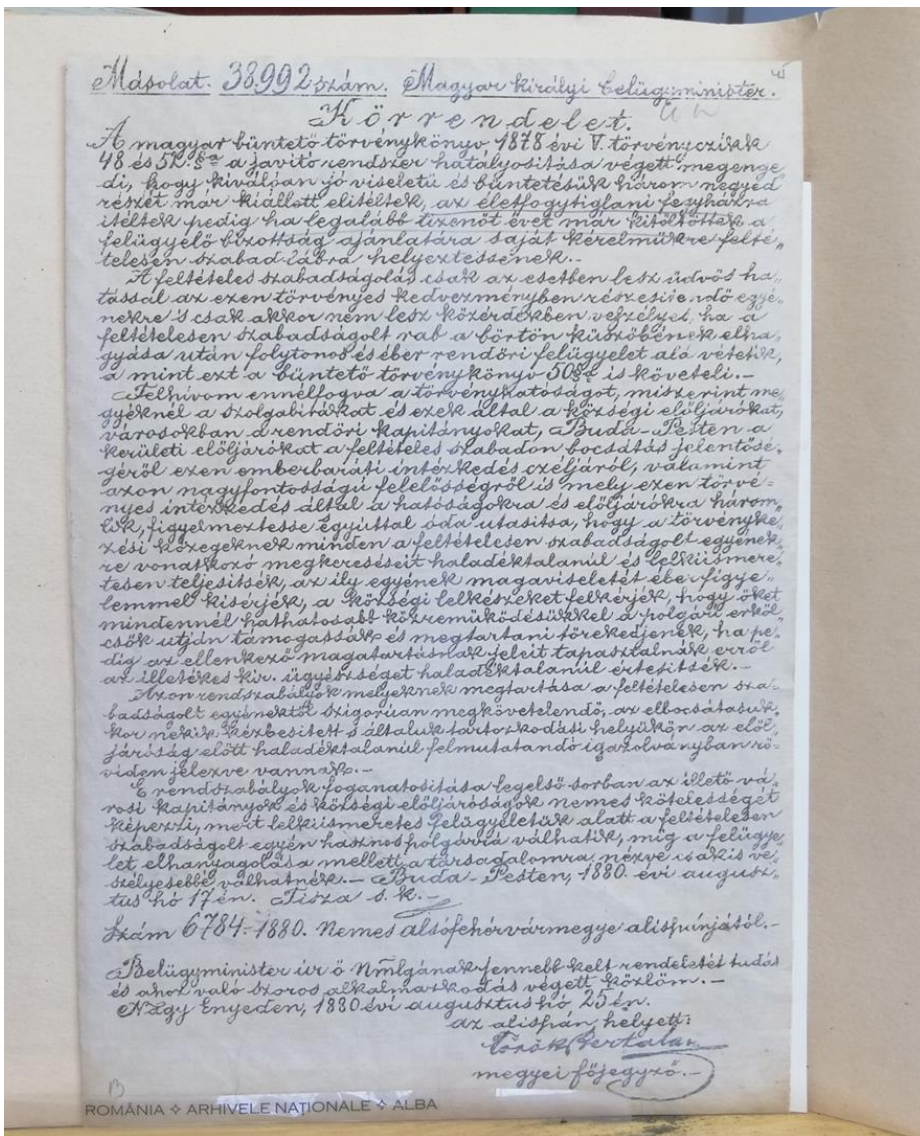 Másolat. 38992 szám. Magyar királyi belügyminister.
Körrendelet.
A magyar büntető törvénykönyv, 1878 évi V. törvényczikk
48 és 52. §a a javító rendszer hatályosítása végett megenge
di, hogy kiválóan jó viseletü és büntetésük három negyed
részét már kiállott elitéltek, az életfogytiglani fegyházra
itéltek pedig ha legalább tizenöt évet már kitöltöttek a
felügyelő bizottság ajánlatára saját kérelmükre felté„
telesen szabad lábra helyeztessenek.-
A feltételes szabadságolás csak az esetben lesz üdvös ha„
tással az ezen törvényes kedvezményben részesitendő egyé„
nekre s csak akkor nem lesz közérdekben veszélyes, ha a
feltételesen szabadságolt rab a börtön küszöbének elha„
gyása után folytonos és éber rendőri felügyelet alá vétetik,
a mint ezt a büntető törvénykönyv 50§a is követeli.-
Felhívom ennélfogva a törvényhatóságot, miszerint me„
gyéknél a szolgabirákat és ezek által a községi előljárókat,
városokban a rendőri kapitányokat, Buda-Pesten a
kerületi előljárókat a feltételes szabadon bocsátás jelentősé„
géről ezen emberbaráti intézkedés czéljáról, valamint
azon nagyfontosságú felelősségről is mely ezen törvé=
nyes intézkedés által a hatóságokra és előljárókra három„
lik, figyelmeztesse egyúttal oda utasitsa, hogy a törvényke„
zési közegeknek minden a feltételesen szabadságolt egyének„
re vonatkozó megkereséseit haladéktalanúl és lelkiismere„
tesen teljesitsék, az ily egyének magaviseletét éber figye„
lemmel kisérjék, a községi lelkészeket felkérjék, hogy őket
mindennél hathatósabb közremüködésükkel a polgári erköl„
csök utján támogassák és megtartani törekedjenek, ha pe„
dig az ellenkező magatartásnak jeleit tapasztalnák erről
az illetékes kir. ügyészséget haladéktalanúl értesitsék.-
Azon rendszabályok melyeknek megtartása a feltételesen sza„
badságolt egyénektől szigorúan megkövetelendő, az elbocsátásuk„
kor nekik kézbesitett s általuk tartozkodási helyükön az elől„
járóság előtt haladéktalanúl felmutatandó igazolványban rö„
viden jelezve vannak.-
E rendszabályok foganatositása legelső sorban az illető vá„
rosi kapitányok és községi előljáróságok nemes kötelességét
képezi, mert lelkiismeretes felügyeletük alatt a feltételesen
szabadságolt egyén hasznos polgárrá válhatik, míg a felügye„
let elhanyagolása mellett a társadalomra nézve csakis ve„
szélyesebbé válhatnék.- Buda-Pesten, 1880. évi augusz„
tus hó 17én. Tisza s.k.-
Szám 6784.-1880. Nemes alsófehérvármegye alispánjától.-
Belügyminister úr ő Nmlgának fennebb kelt rendeletét tudás
és ahoz való szoros alkalmazkodás végett közlöm.-
NAgy Enyeden, 1880 évi augusztus hó 25én.
az alispán helyett:
Török Bertalan
megyei főjegyző.-
B
ROMÂNIA ❖ ARHIVELE NAȚIONALE ❖ ALBA